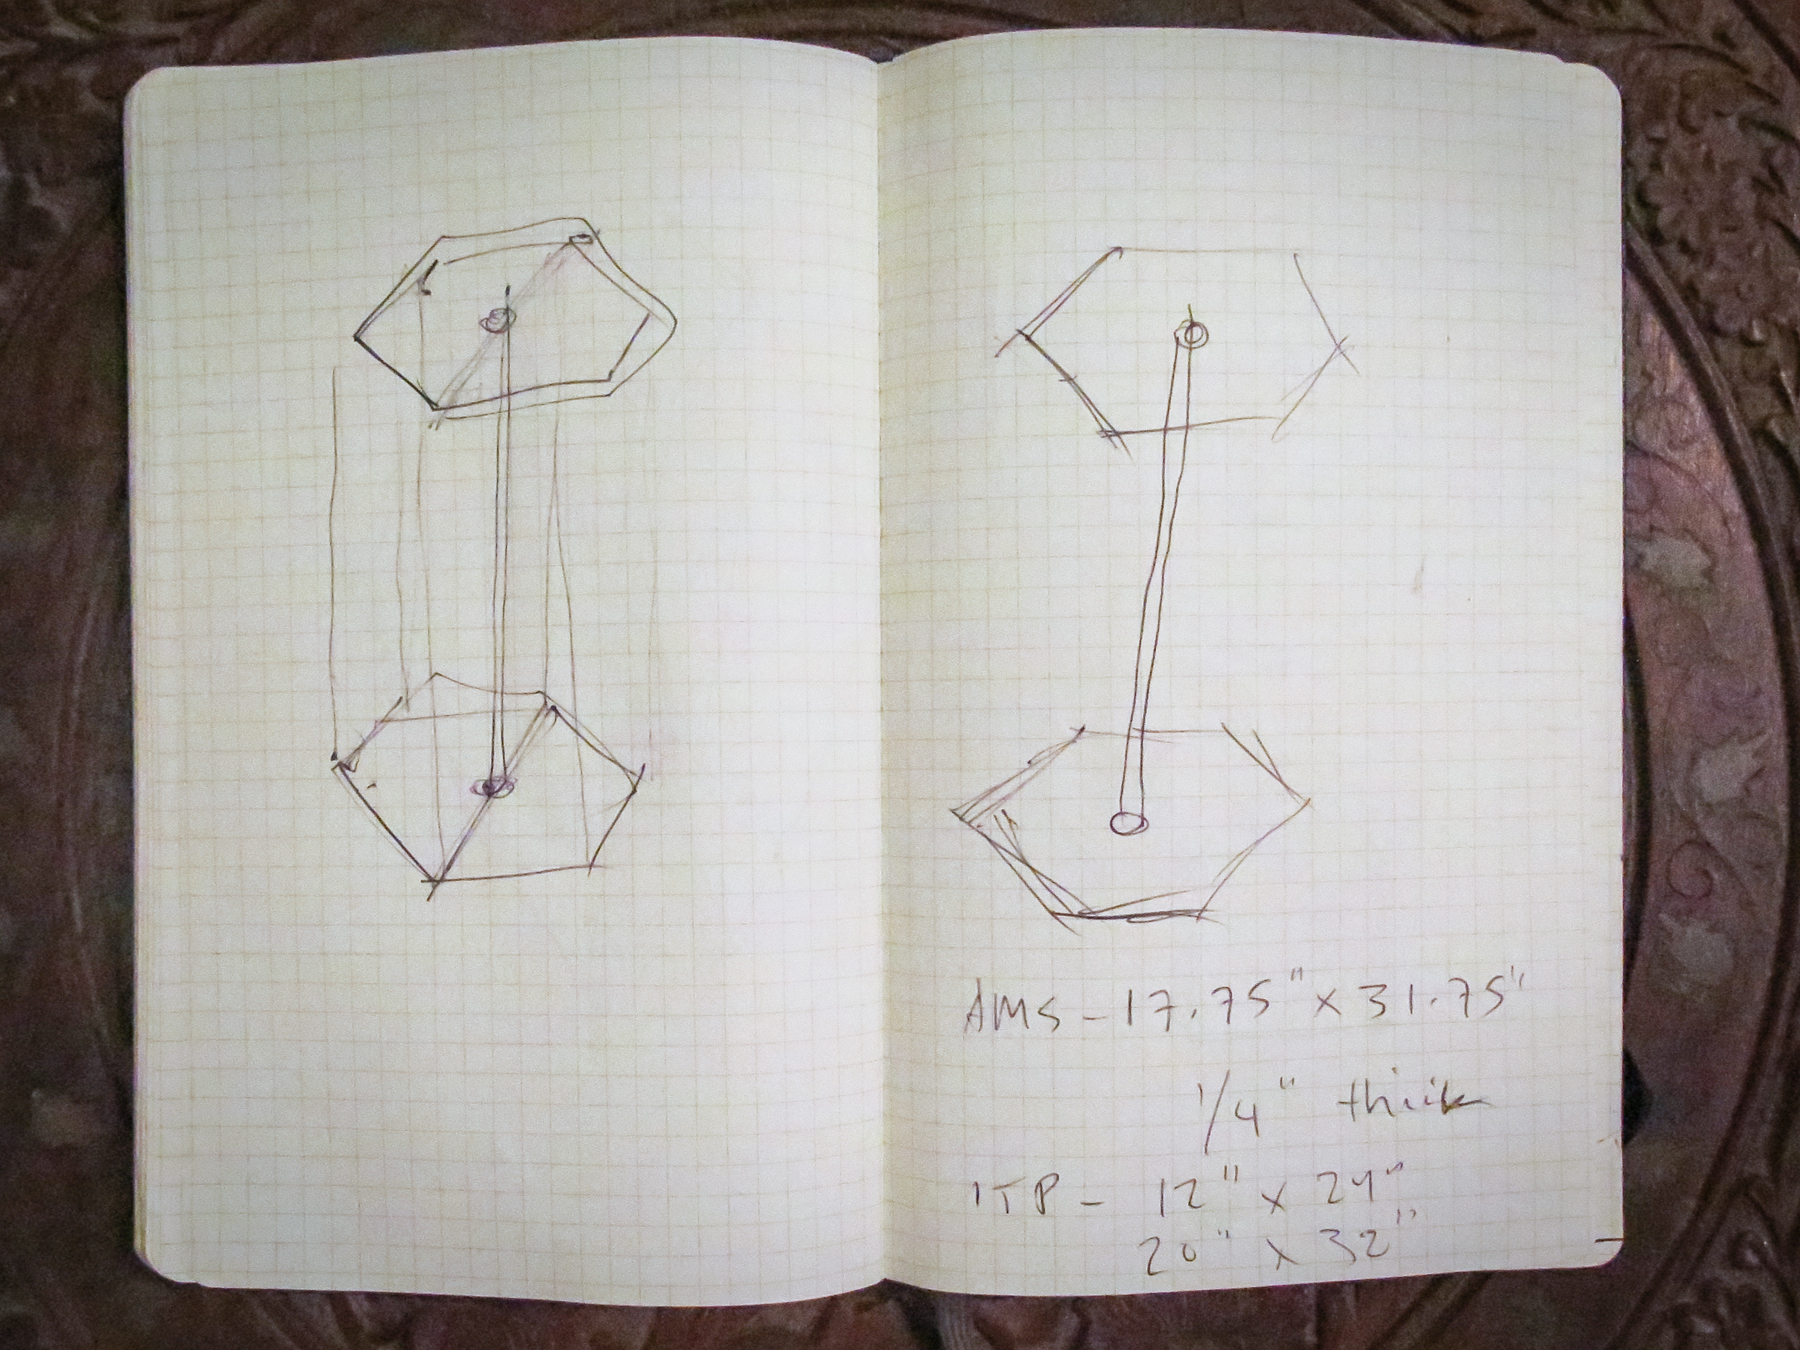 AMS - 17.75" x 31.75"
1/4" thick
ITP - 12" x 24"
20" x 32"